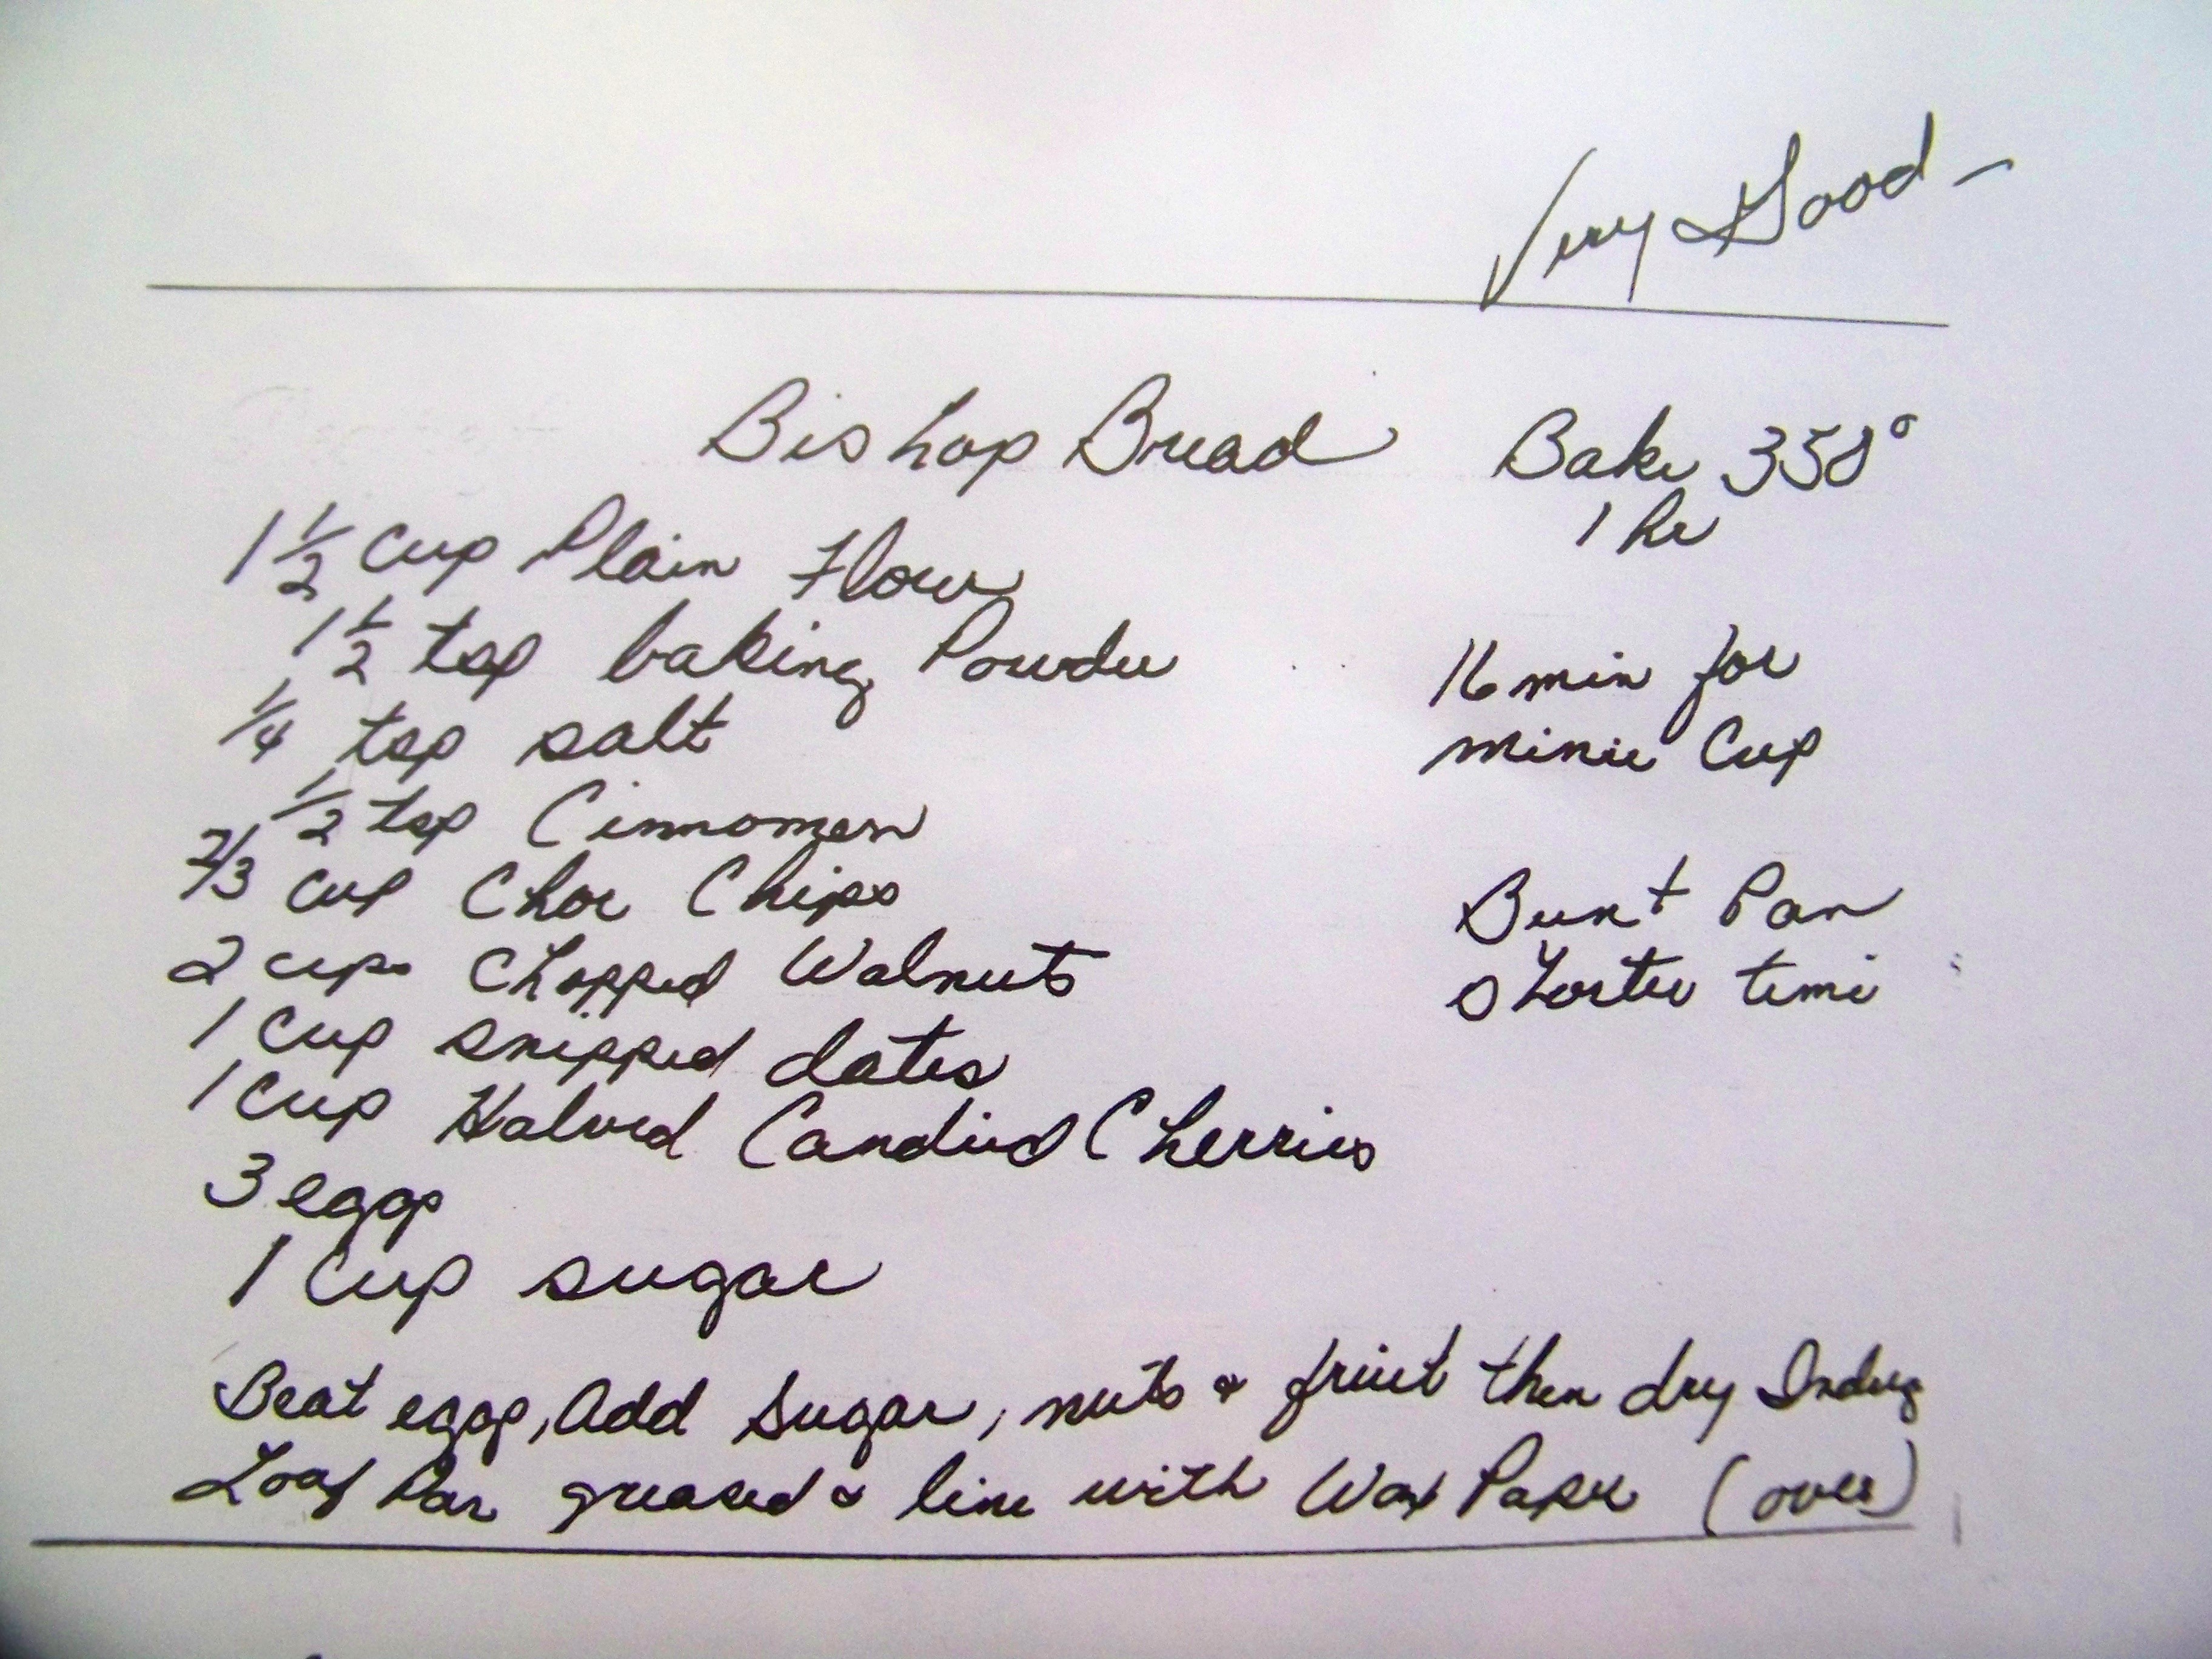 Very Good -
Bishop Bread
Bake 350°
1 hr
1 1/2 cup Plain Flour
1 1/2 tsp baking Powder
1/4 tsp salt
1/2 tsp Cinnomon
2/3 cup Choc Chips
2 cups Chopped Walnuts
1 Cup snipped dates
1 Cup Halved Candied Cherries
3 eggs
1 Cup sugar
16 min for
minie Cup
Bunt Pan
shorter time
Beat eggs, Add Sugar, nuts & fruit then dry
Loaf Pan greased & line with Wax Paper (over)